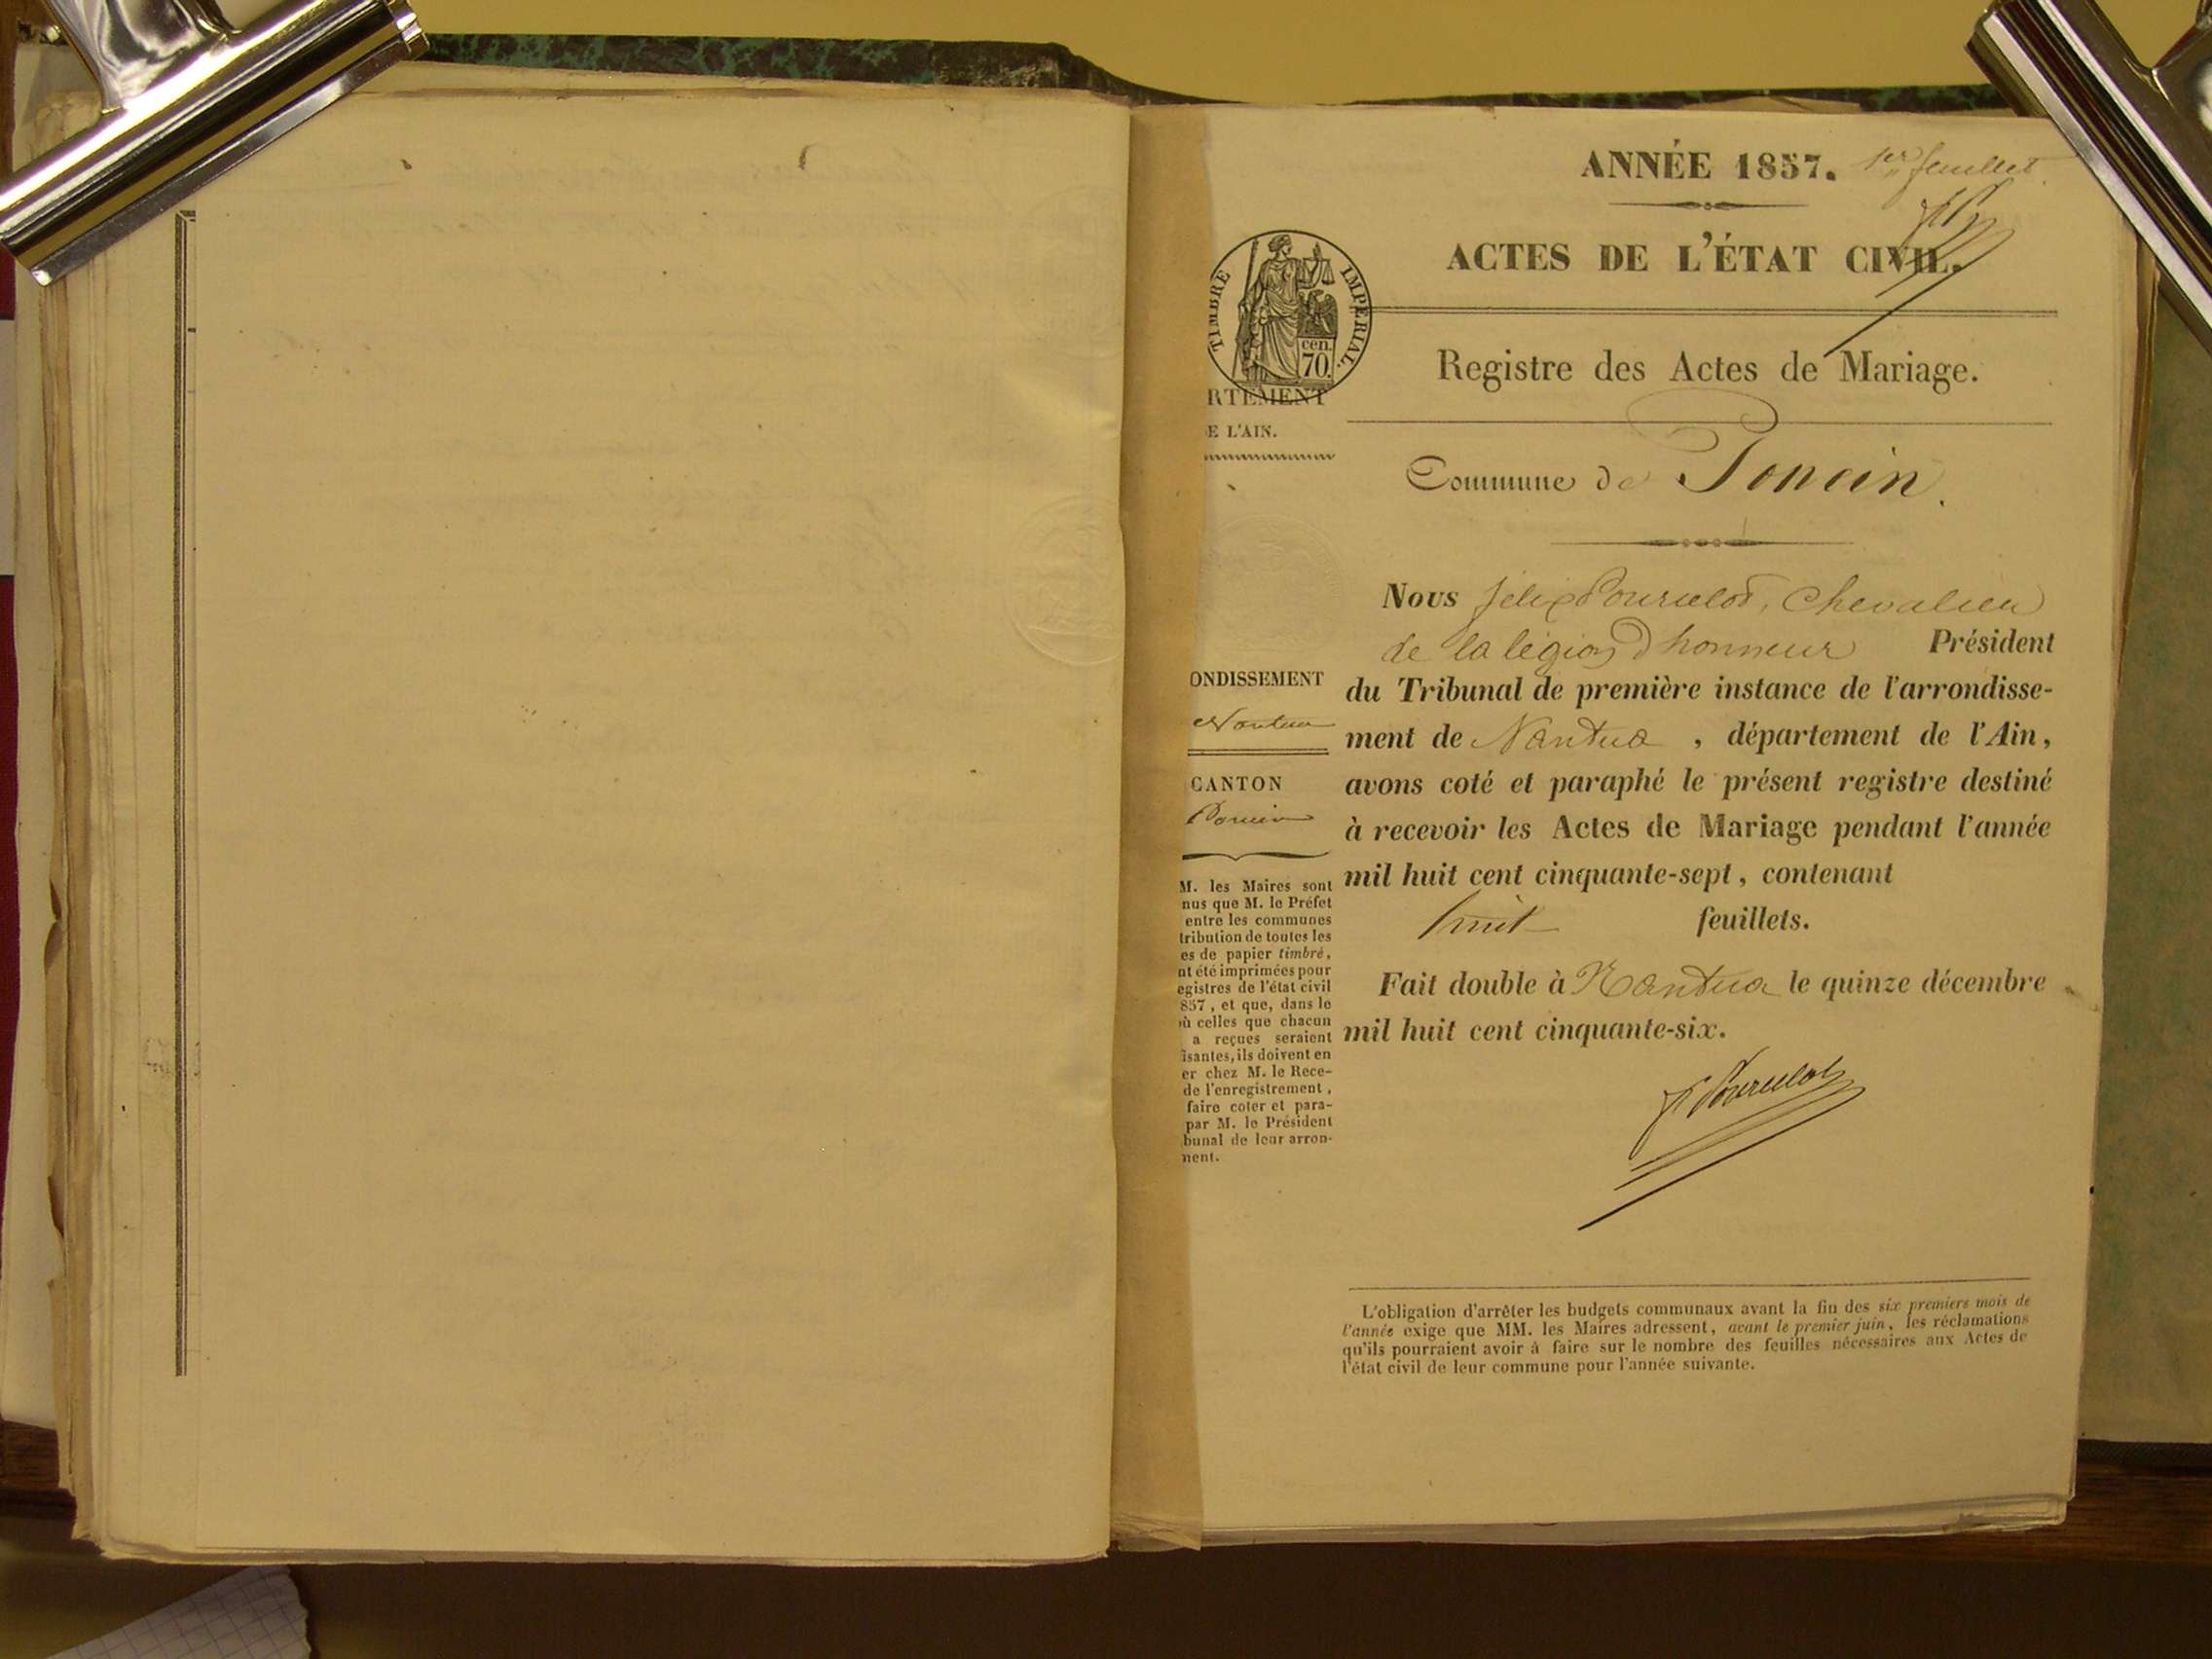 ANNÉE 1857. 1er feuillet.
ACTES DE L'ÉTAT CIVIL.
TIMBRE IMPÉRIAL.
cen.
70.
Registre des Actes de Mariage.
RTEMENT
E L'AIN.
Commune de Poncin.
Nous Félix Pourcelot, Chevalier
de la légion d'honneur Président
du Tribunal de première instance de l'arrondisse-
ment de Nantua , département de l'Ain,
avons coté et paraphé le présent registre destiné
à recevoir les Actes de Mariage pendant l'année
mil huit cent cinquante-sept, contenant
huit feuillets.
Fait double à Nantua le quinze décembre
mil huit cent cinquante-six.
ONDISSEMENT
Nantua
CANTON
Poncin
M. les Maires sont
nus que M. le Préfet
entre les communes
tribution de toutes les
es de papier timbré,
nt été imprimées pour
egistres de l'état civil
857, et que, dans le
où celles que chacun
a reçues seraient
isantes, ils doivent en
er chez M. le Rece-
de l'enregistrement,
faire coter et para-
par M. le Président
bunal de leur arron-
ment.
F. Pourcelot
L'obligation d'arrêter les budgets communaux avant la fin des six premiers mois de
l'année exige que MM. les Maires adressent, avant le premier juin, les réclamations
qu'ils pourraient avoir à faire sur le nombre des feuilles nécessaires aux Actes de
l'état civil de leur commune pour l'année suivante.